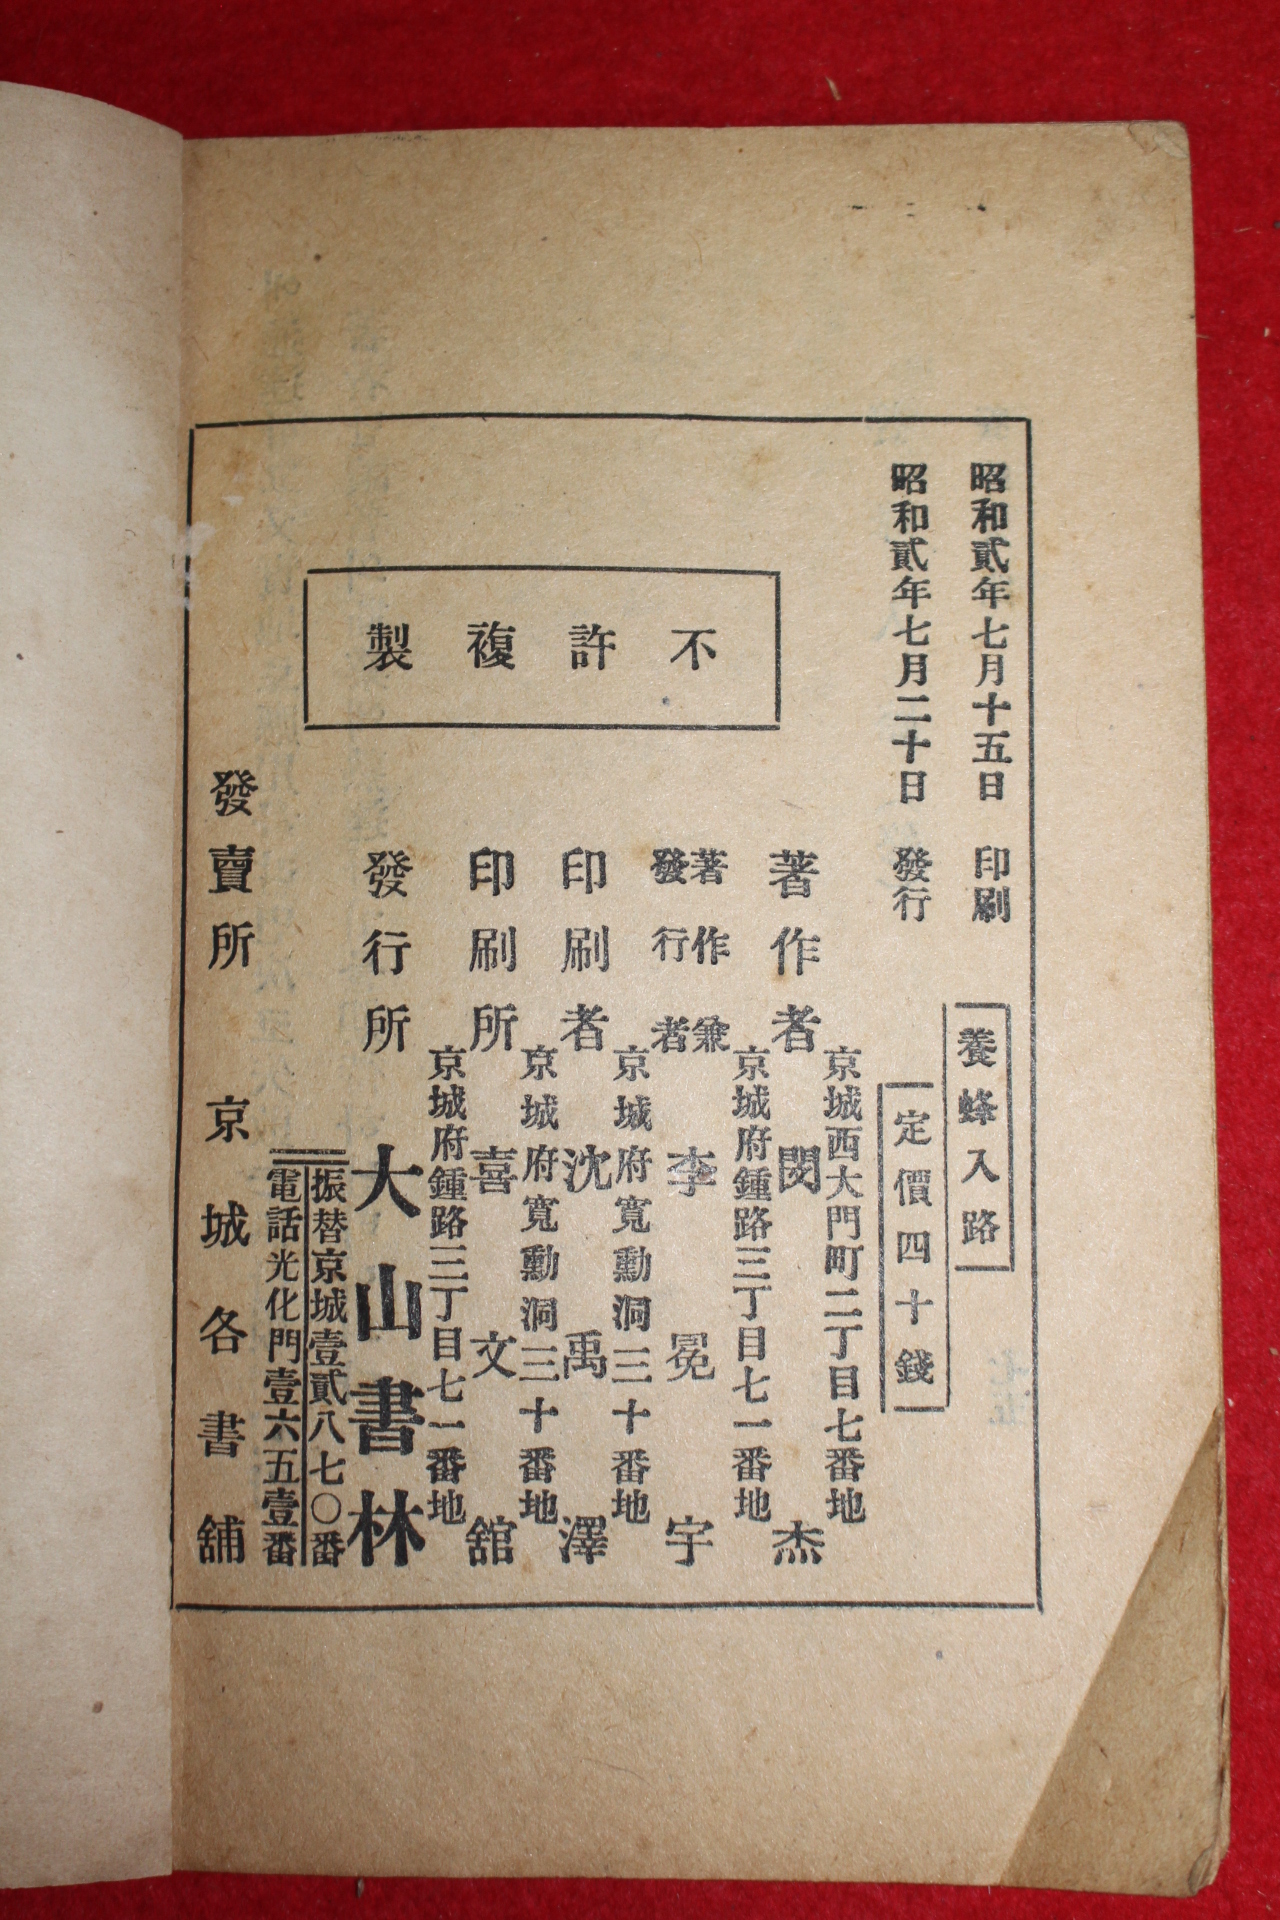 昭和貳年七月十五日 印刷
昭和貳年七月二十日 發行
養蜂入路
定價四十錢
不許複製
京城西大門町二丁目七番地
著作者 閔杰
京城府鍾路三丁目七一番地
著作兼發行者 李冕宇
京城府寬勳洞三十番地
印刷者 沈禹澤
京城府寬勳洞三十番地
印刷所 喜文舘
京城府鍾路三丁目七一番地
發行所 大山書林
振替京城壹貳八七〇番
電話光化門壹六五壹番
發賣所 京城各書舖